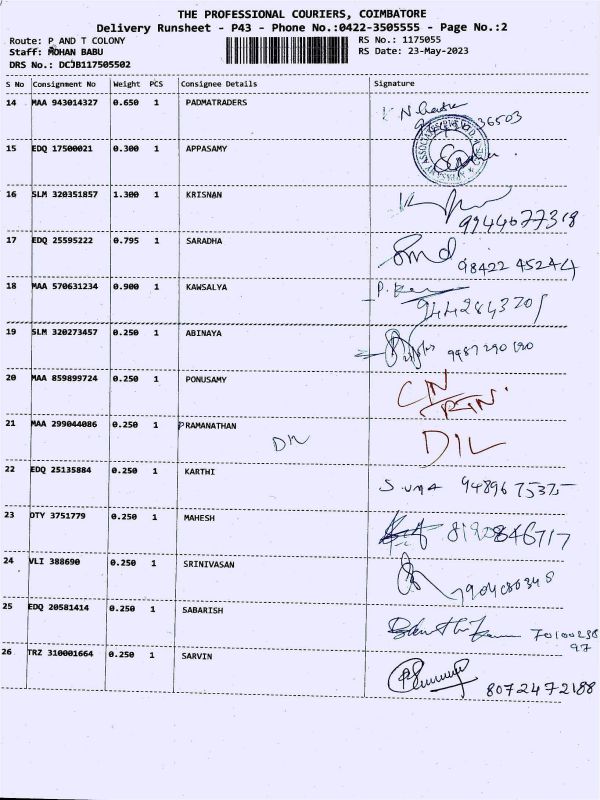 THE PROFESSIONAL COURIERS, COIMBATORE
Delivery Runsheet - P43 - Phone No.:0422-3505555 - Page No.:2
Route: P AND T COLONY RS No.: 1175055
Staff: MOHAN BABU RS Date: 23-May-2023
DRS No.: DCJB117505502
S No Consignment No Weight PCS Consignee Details Signature
14 MAA 943014327 0.650 1 PADMATRADERS
36503
15 EDQ 17500021 0.300 1 APPASAMY
16 SLM 320351857 1.300 1 KRISNAN
9944077318
17 EDQ 25595222 0.795 1 SARADHA
98422 45244
18 MAA 570631234 0.900 1 KAWSALYA
9442843701
19 SLM 320273457 0.250 1 ABINAYA
20 MAA 859899724 0.250 1 PONUSAMY
CN
RTN
21 MAA 299044086 0.250 1 PRAMANATHAN
D/L D/L
22 EDQ 25135884 0.250 1 KARTHI
Suga 9489675375
23 DTY 3751779 0.250 1 MAHESH
8190846717
24 VLI 388690 0.250 1 SRINIVASAN
25 EDQ 20581414 0.250 1 SABARISH
70100238
97
26 TRZ 310001664 0.250 1 SARVIN
8072472188